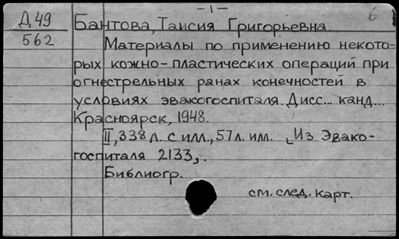 – 1 –
6
Д 49
562
Бантова, Таисия Григорьевна.
Материалы по применению некото-
рых кожно-пластических операций при
огнестрельных ранах конечностей в
условиях эвакогоспиталя. Дисс... канд...
Красноярск, 1948.
II, 338 л. с илл., 57 л. илл. Из Эвако-
госпиталя 2133,.
Библиогр.
см. след. карт.